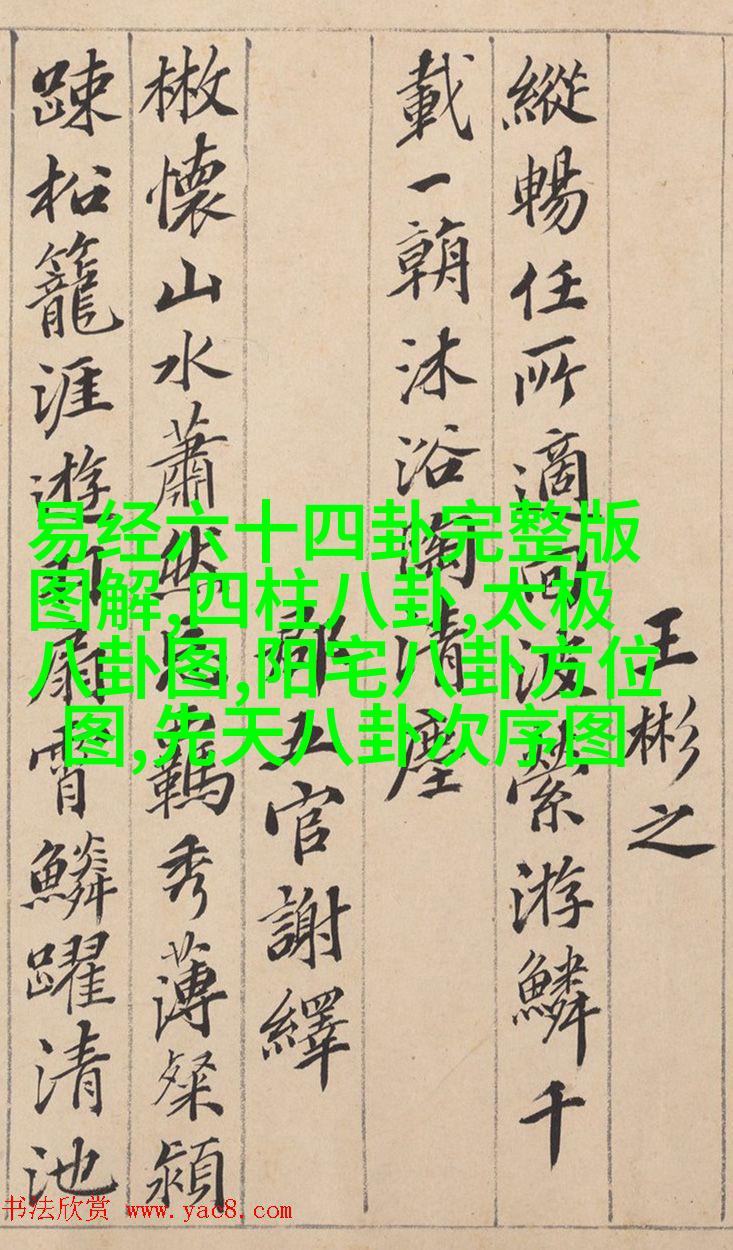 王彬之
縱暢任所適回波縈游鱗千
載一朝沐浴陶清塵
郡五官謝繹
懷山水蕭然忘羈秀薄粲穎
踈松籠涯遊羽扇霄鱗躍清池
易经六十四卦完整版
图解,四柱八卦,太极
八卦图,阳宅八卦方位
图,先天八卦次序图
书法欣赏 www.yac8.com